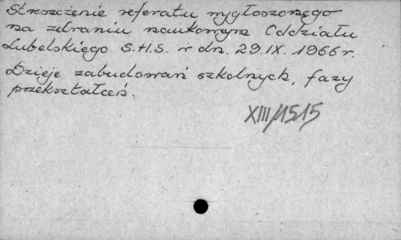 Streszczenie referatu wygłoszonego
na zebraniu naukowym Oddziału
Lubelskiego S.H.S. w dn. 29 IX. 1966 r.
Dzieje zabudowań szkolnych, fazy
przekształceń.
XIII/1515